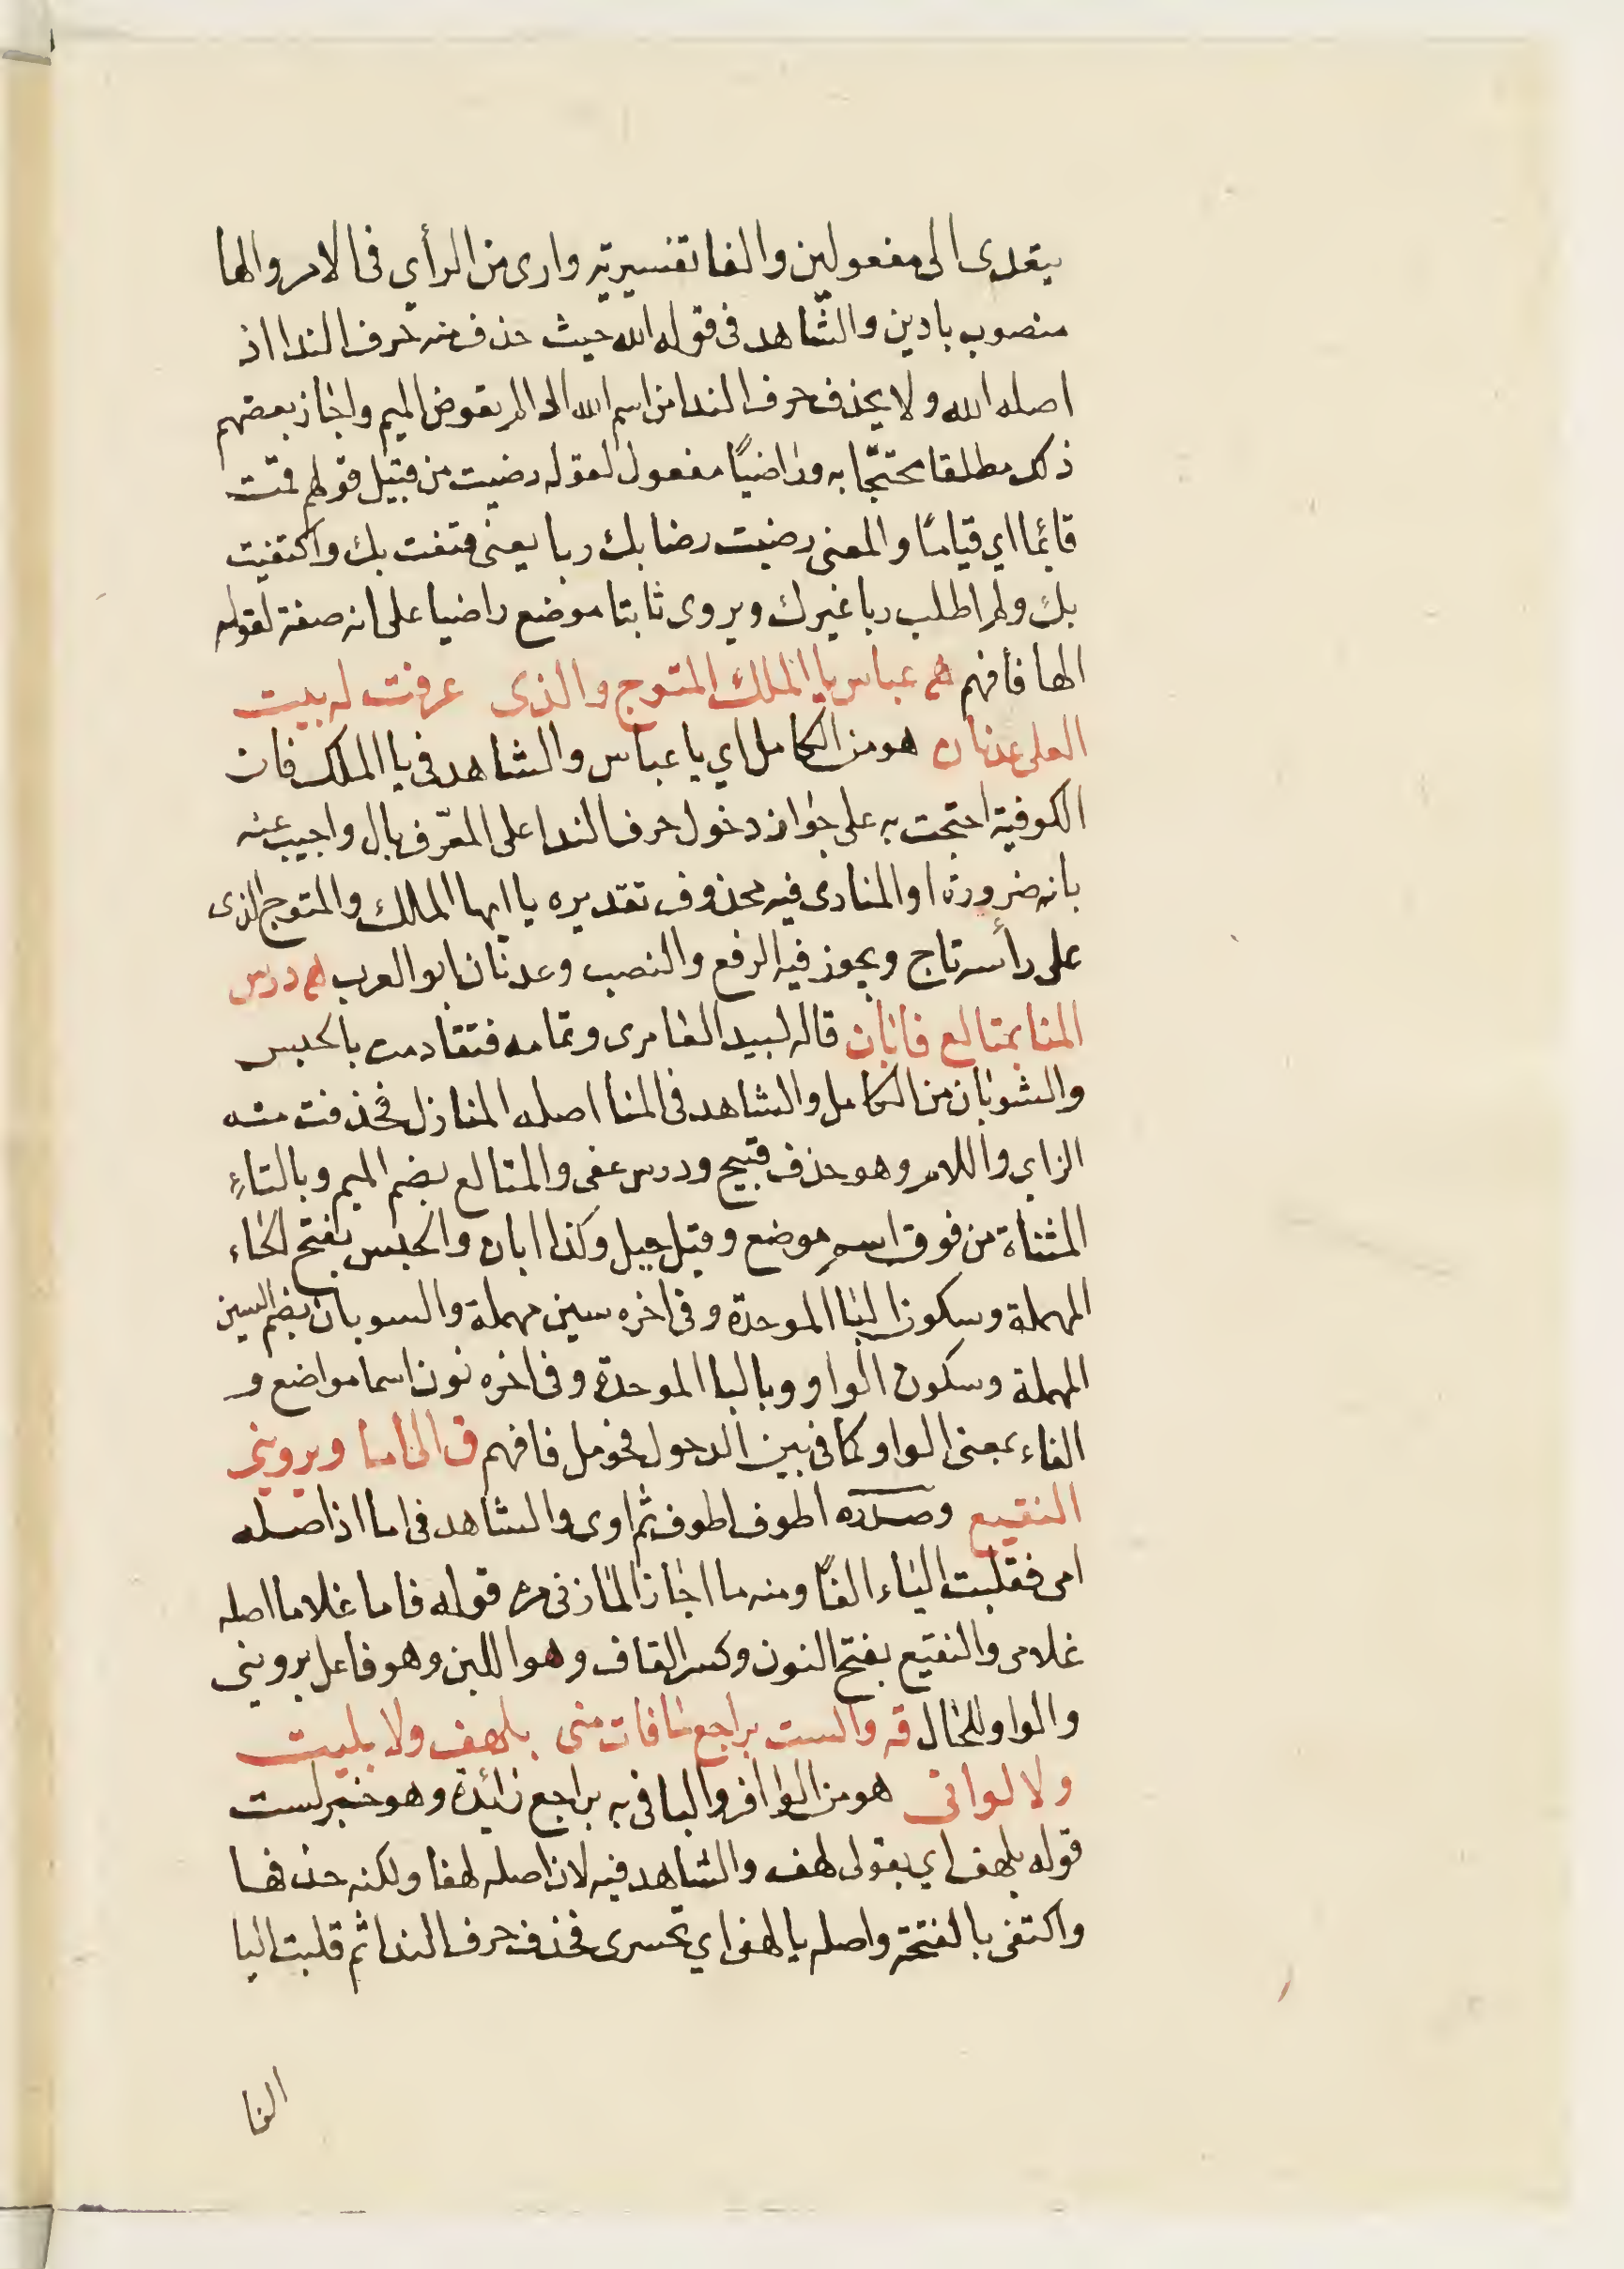 يتعدى الى مفعولين والفا تفسيرية وارى من الرأي فى الامر والها
منصوب بادين والشاهد فى قوله الله حيث حذف منه حرف الندا اذ
اصله الله ولا يحذف حرف الندا من اسم الله اذا لم يعوض الميم واجاز بعضهم
ذلك مطلقا محتجّا به وراضيًا مفعول لقوله رضيت من قبيل قولهم قمت
قائما اي قيامًا والمعنى رضيت رضا بك ربا يعنى قنعت بك واكتفيت
بك ولم اطلب ربا غيرك ويروى ثابتا موضع راضيا على انه صفة لقوله
الها فافهم هم عباس يا الملك المتوج والذى عرفت له بيت
العلى عدنان هو من الكامل اي يا عباس والشاهد فى يا الملك فان
الكوفية احتجت به على جواز دخول حرف الندا على المعرّف بال واجيب عنه
بانه ضرورة او المنادى فيه محذوف تقديره يا ايها الملك والمتوج الذى
على رأسه تاج ويجوز فيه الرفع والنصب وعدنان ابو العرب هم درس
المنا بمتالع فابان قاله لبيد العامرى وتمامه فتقادمت بالحبس
والشوبان من الكامل والشاهد فى المنا اصله المنازل فحذفت منه
الزاي واللام وهو حذف قبيح ودرس عفى والمتالع بضم الميم وبالتاءِ
المثناة من فوق اسم موضع وقيل جبل وكذا ابان والحبس بفتح الحاء
المهملة وسكون البا الموحدة وفى اخره سين مهملة والسوبان بضم السين
المهملة وسكون الواو وبالبا الموحدة وفى اخره نون اسما مواضع و
الفاء بمعنى الواو كما فى بين الدخول فحومل فافهم ق الى اما ويروينى
النقيع وصدره اطوف اطوف ثم اوى والشاهد فى اما اذ اصله
امى فقلبت الياء الفًا ومنه ما اجاز المازنى من قوله فاما غلاما اصله
غلامى والنقيع بفتح النون وكسر القاف وهو اللبن وهو فاعل يروينى
والواو للحال قه والست براجع ما فات منى بلهف ولا بليت
ولا لوانى هو من الوافر والبا فى به براجع زائدة وهو خبر لست
قوله بلهف اي بقولى لهف والشاهد فيه لان اصله لهفا ولكنه حذفها
واكتفى بالفتحة واصله يا لهفى اي تحسرى فحذف حرف الندا ثم قلبت اليا
الفا